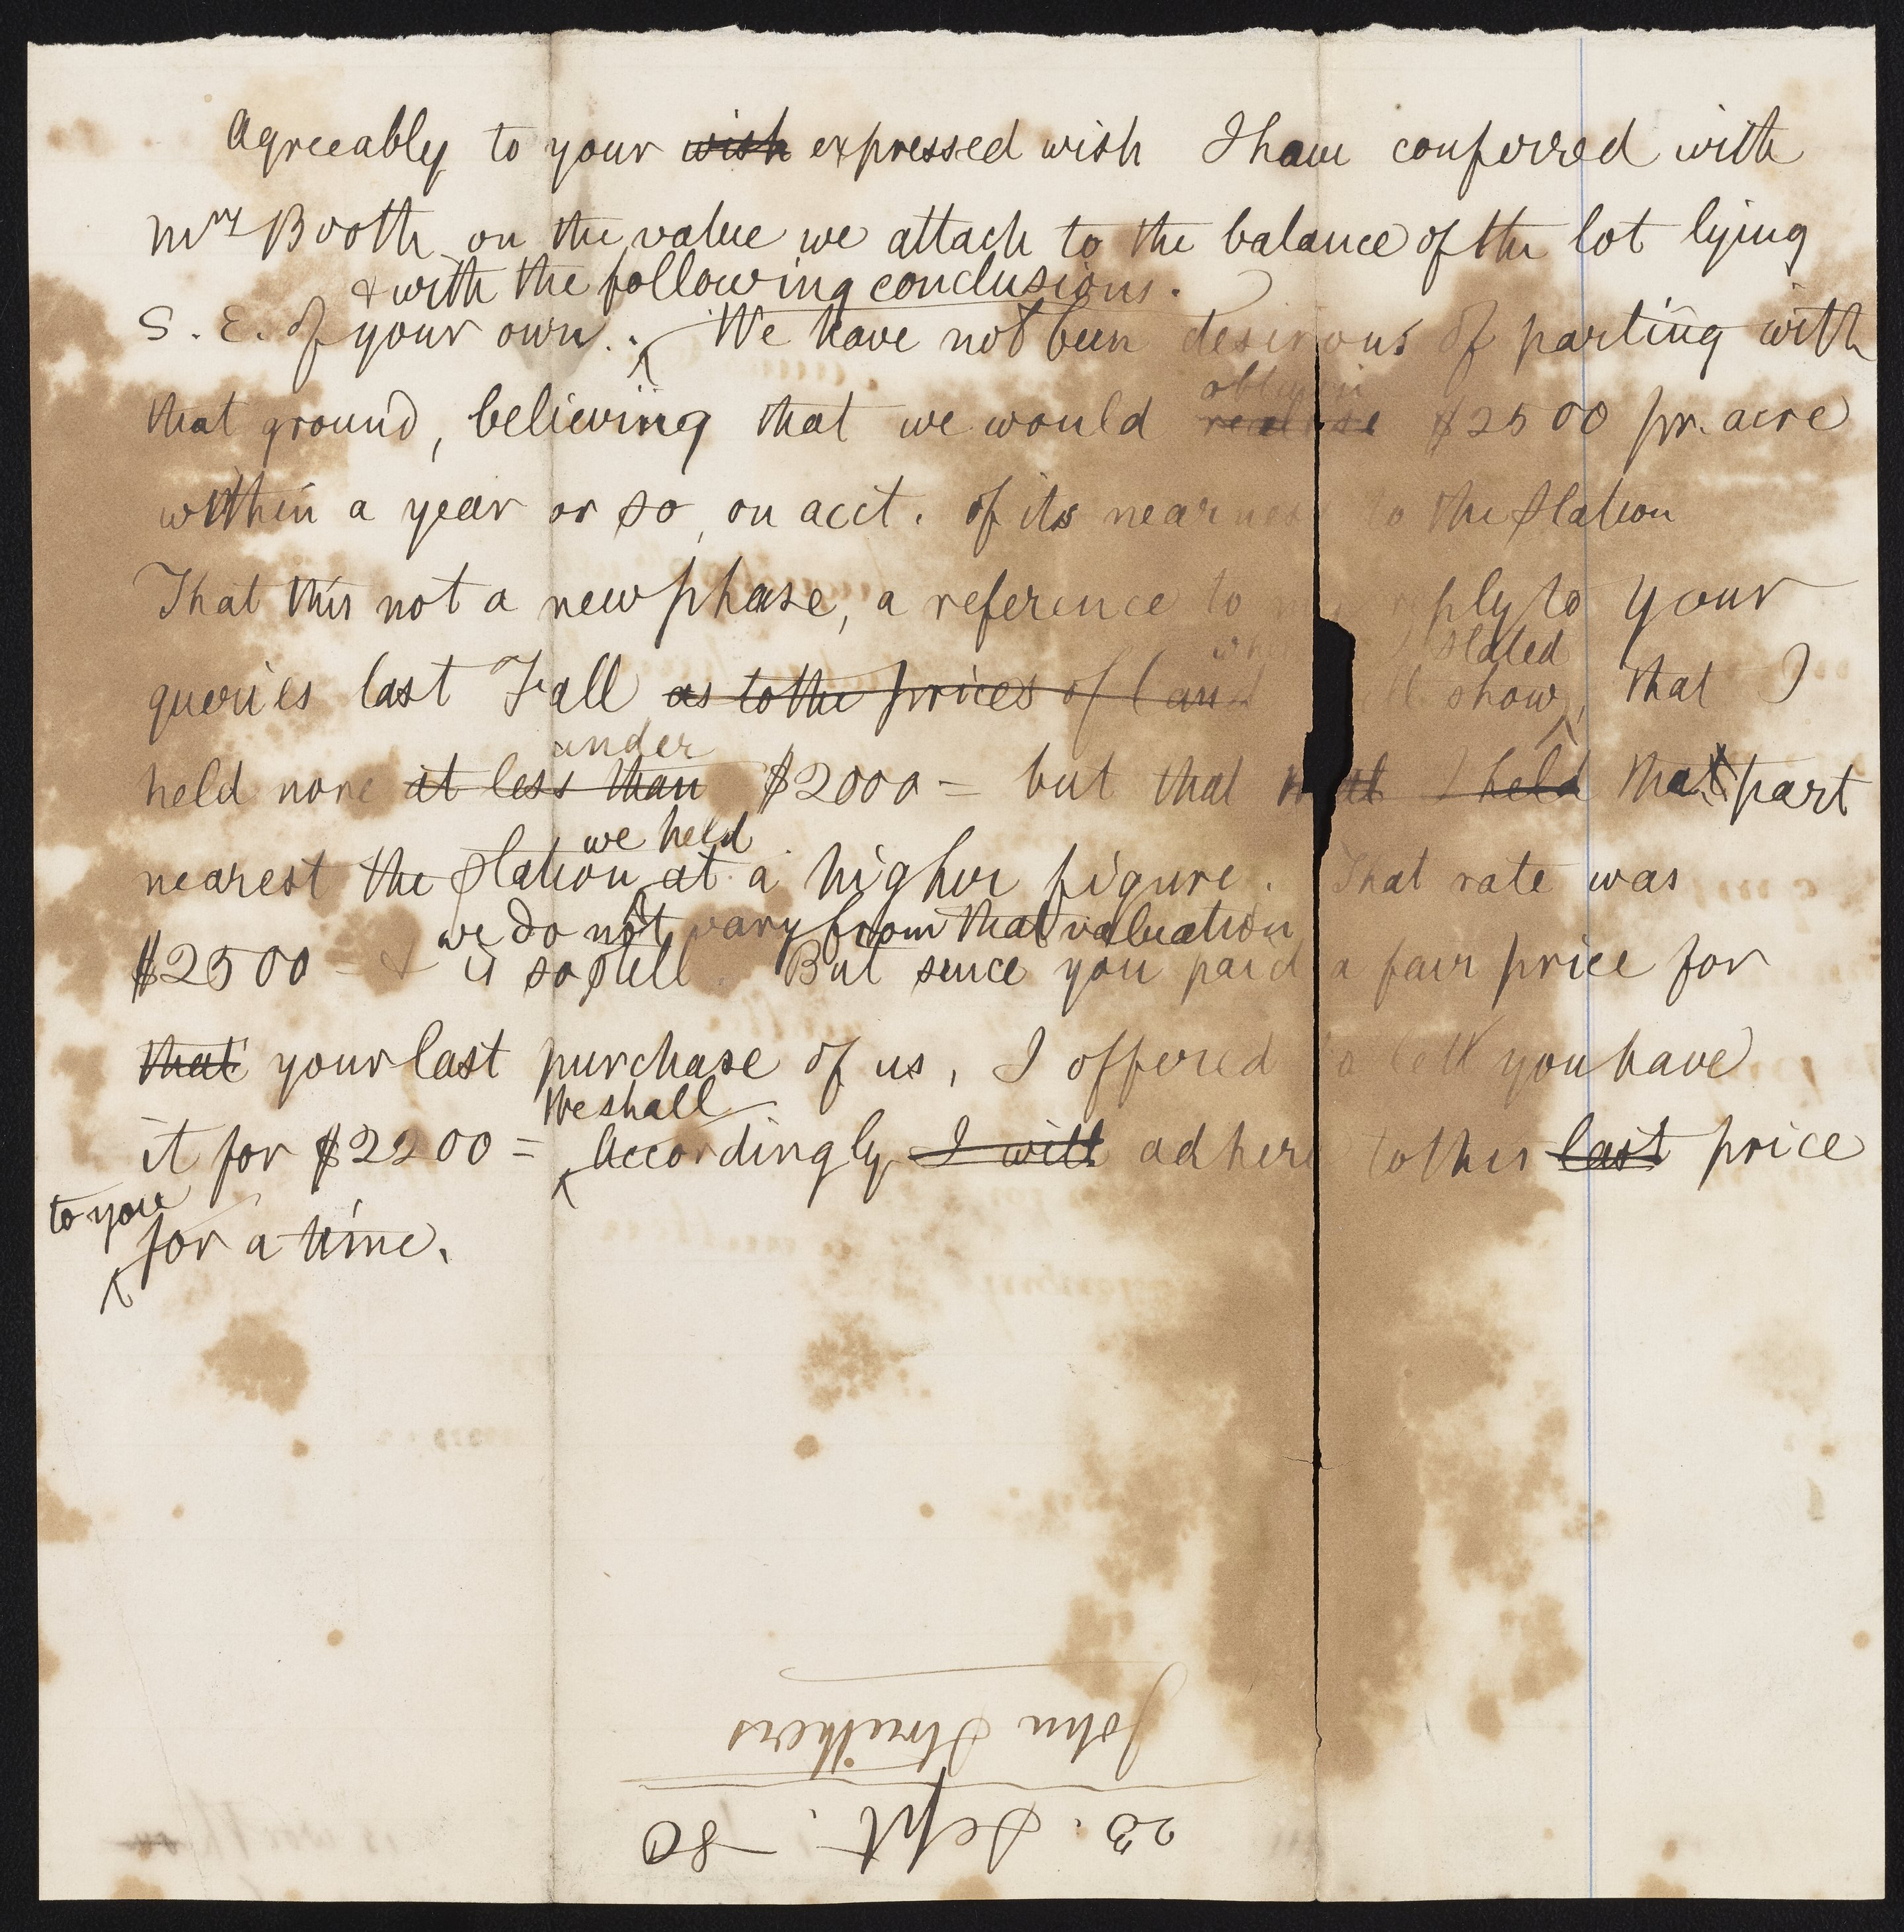 Agreeably to your wish expressed wish I have conferred with
Mrs Booth on the value we attach to the balance of the lot lying
& with the following conclusions.
S. E. of your own. We have not been desirous of parting with
obtain
that ground, believing that we would realise $2500 pr. acre
within a year or so, on acct. of its nearness to the Station
That this not a new phase, a reference to my reply to your
stated
queries last Fall as to the prices of land will show, that I
under
held none at less than $2000 = but that I held that part
we held
nearest the Station at a higher figure. That rate was
we do not vary from that valuation
$2500 - & is so still. But since you paid a fair price for
that your last purchase of us, I offered to let you have
We shall
it for $2200 = Accordingly I will adhere to this last price
to you
for a time.
John Struthers
23. Sept. - 80